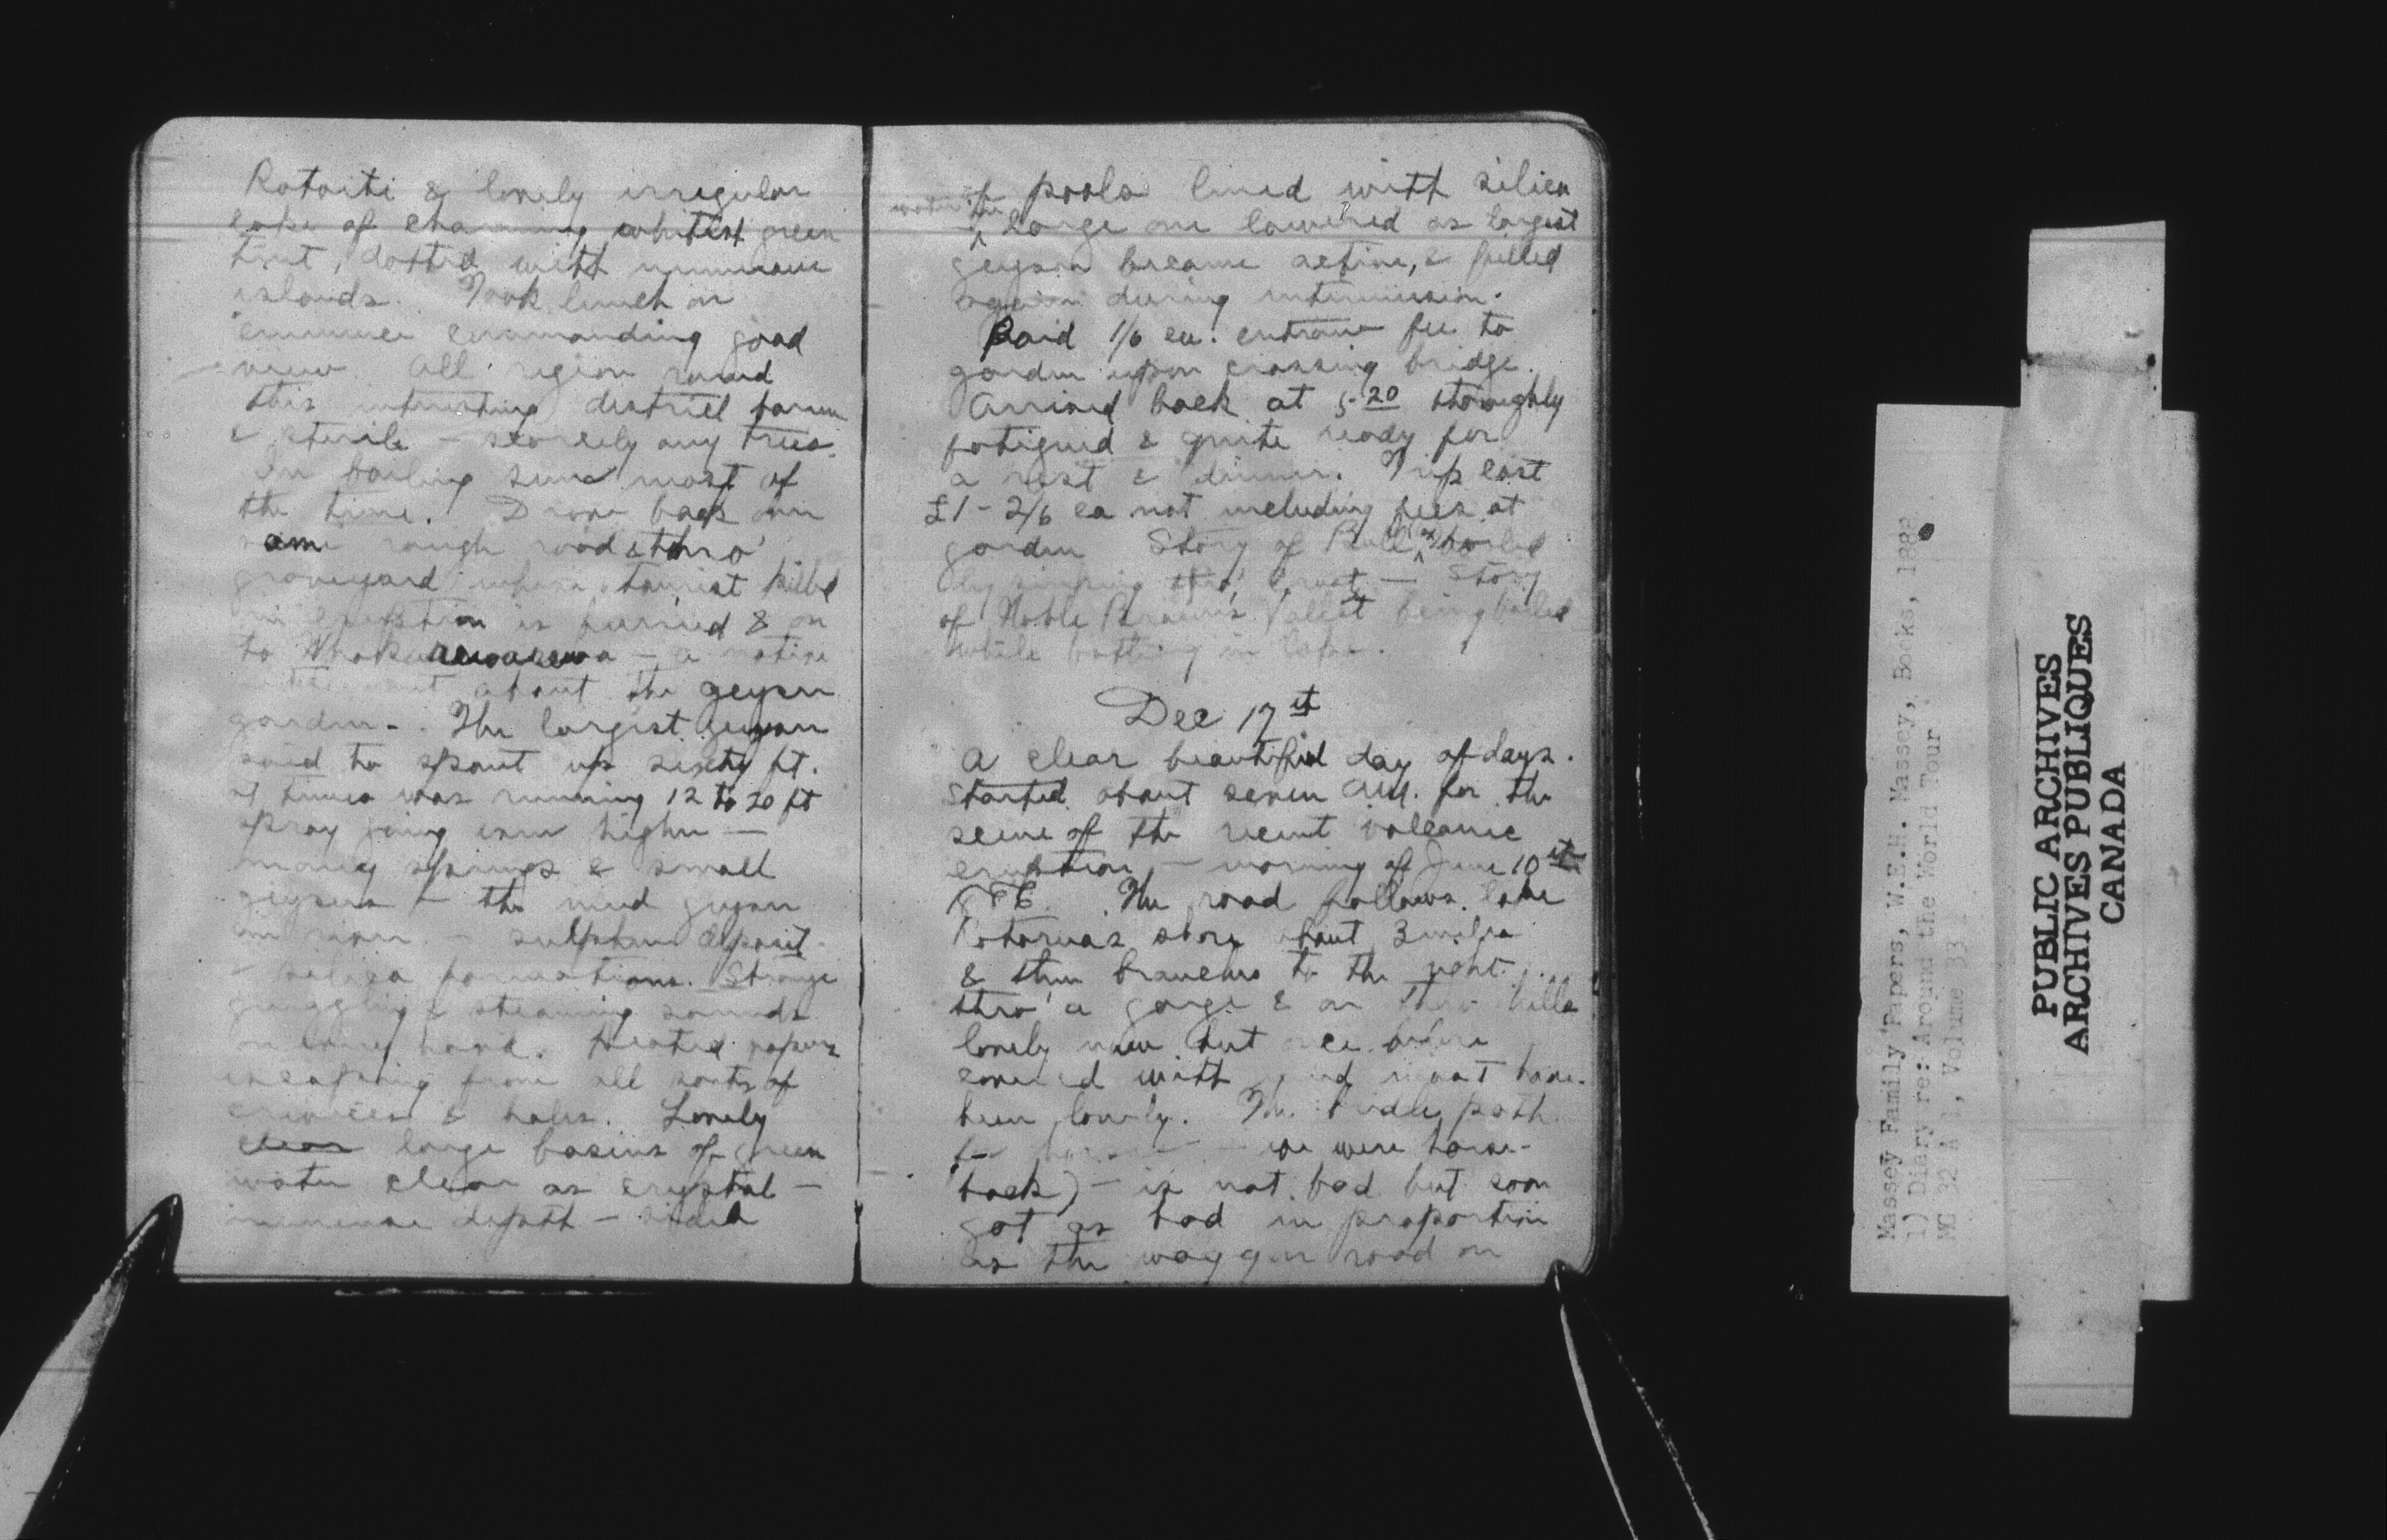 Rotoiti & lovely irregular
lake of charming whitish green
tint, dotted with numerous
islands. Took lunch on
eminence commanding good
view. All region round
this interesting district barren
& sterile – scarcely any trees.
In boiling sun most of
the time. Drove back over
same rough road & thro'
graveyard where tourist killed
in eruption is burried & on
to Whakarewarewa – a native
about the geyser
garden –. The largest geyser
said to spout up sixty ft.
at times was running 12 to 20 ft
spray going even higher –
many springs & small
geysers – the mud geyser
– sulphur deposit
silica formations. Strange
& steaming sounds
on every hand. Heated vapors
escaping from all sorts of
crevices & holes. Lovely
clear large basins of green
water clear as crystal –
immense depth – sides
of pools lined with silica
water in the large one lowered as largest
geyser became active, & filled
again during intermission.
Paid 1/6 ea. entrance fee to
garden upon crossing bridge.
Arrived back at 5-20 thoroughly
fatigued & quite ready for
a rest & dinner. Trip cost
£1 - 2/6 ea not including fees at
garden Story of Bull (ox) boiled
by sinking thro' crust – Story
of Noble Brown's Vallet being boiled
while bathing in
Dec 17th
A clear beautiful day of days.
Started about seven A.M. for the
scene of the recent volcanic
eruption – morning of June 10th
1886. The road follows lake
Rotorua's shore about 3 miles
& then branches to the right
thro' a gorge & on thro' hills
lonely now but once before
covered with and must have
been lovely. The bridle path
we were horse-
back) – is not bad but soon
got as bad in proportion
as the waggon road on
PUBLIC ARCHIVES
ARCHIVES PUBLIQUES
CANADA
Massey Family Papers, W.E.H. Massey, Books, 1888
1) Diary re: Around the World Tour
MG 32 A 1, Volume 33